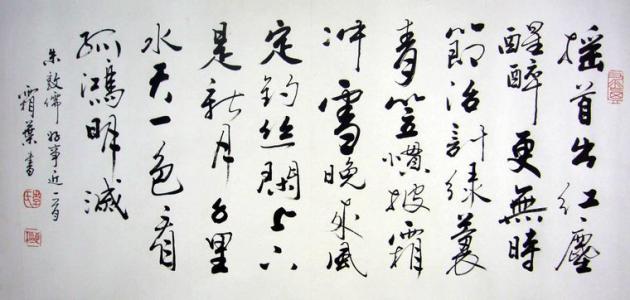 搖首出紅塵
醒醉更無時
節活計綠蓑
青笠慣披霜
冲雪晚來風
定釣絲閑上下
是新月千里
水天一色看
孤鴻明滅
朱敦儒 好事近一首
霜葉書